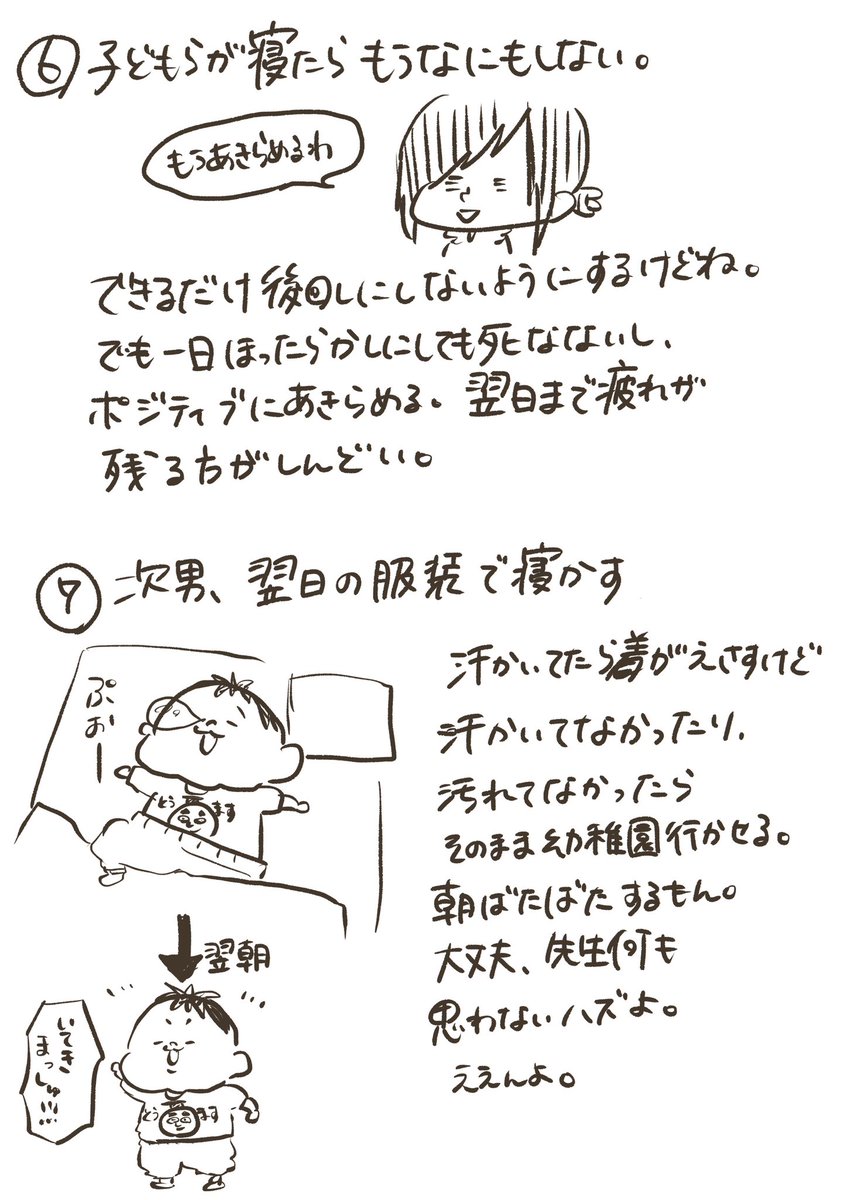 ⑥ 子どもらが寝たら もうなにもしない。
もうあきらめるわ
できるだけ後回しにしないようにするけどね。
でも一日ほったらかしにしても死なないし、
ポジティブにあきらめる。翌日まで疲れが
残る方がしんどい。
⑦ 次男、翌日の服装で寝かす
ぷおー
どう ます
汗かいてたら着がえさすけど
汗かいてなかったり、
汚れてなかったら
そのまま幼稚園行かせる。
朝ばたばたするもん。
大丈夫、先生何も
思わないハズよ。
ええんよ。
翌朝
いてき
まっしゅ!!!
どう ます